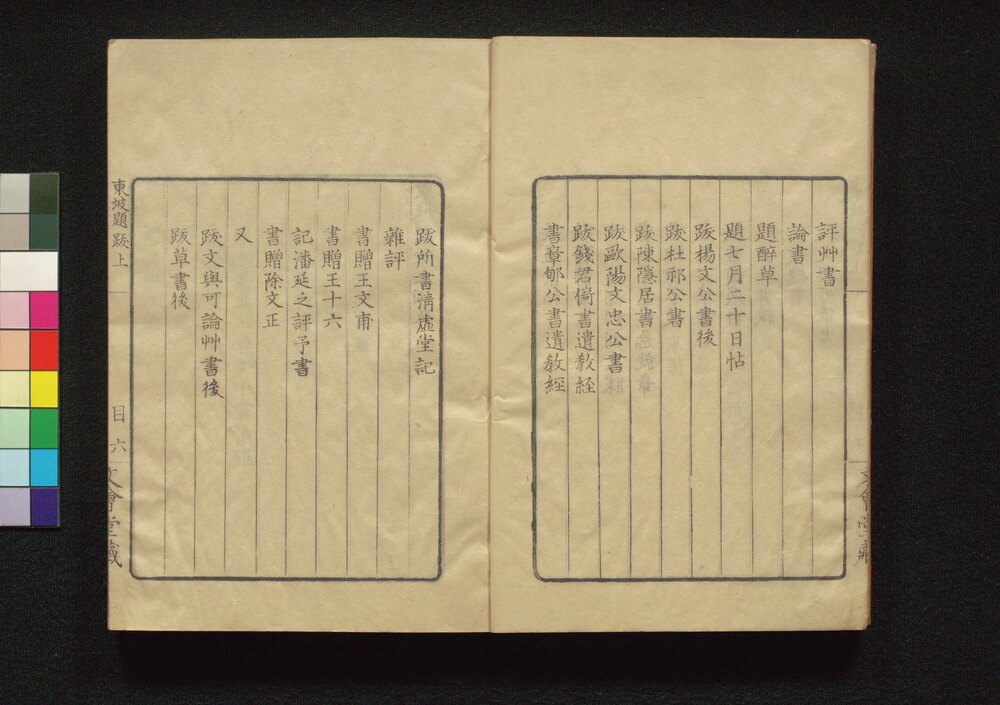 評艸書
論書
題醉草
題七月二十日帖
跋揚文公書後
跋杜祁公書
跋陳隱居書
跋歐陽文忠公書
跋錢君倚書遺教經
書章郇公書遺教經
文會堂藏
跋所書淸虛堂記
雜評
書贈王文甫
書贈王十六
記潘延之評予書
書贈徐文正
又
跋文與可論艸書後
跋草書後
東坡題跋上
目 六
文會堂藏